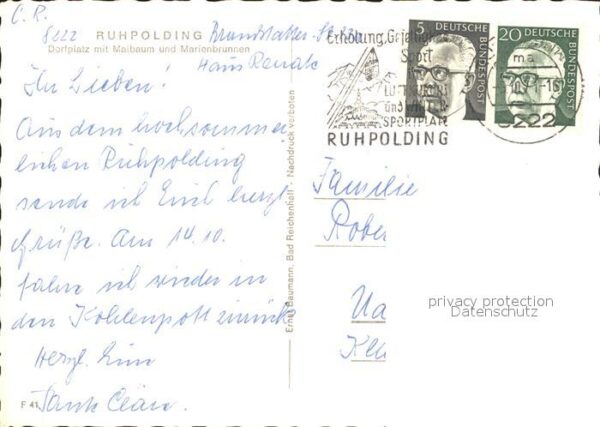 C. P.
8222 RUHPOLDING Brandstätter Str. 23b
Dorfplatz mit Maibaum und Marienbrunnen
Haus Renate
Ihr Lieben!
Aus dem hochsommer
lichen Ruhpolding
sende ich Euch herzl.
Grüße. Am 14.10.
fahre ich wieder in
den Kohlenpott zurück
Herzl. Eure
Tante Cläre.
F 41
Ernst Baumann, Bad Reichenhall · Nachdruck verboten
Erholung, Geselligkeit
Sport
LUFTKURORT
und WINTER
SPORTPLATZ
RUHPOLDING
5 DEUTSCHE BUNDESPOST
20 DEUTSCHE BUNDESPOST
8222
Familie
Rober
privacy protection
Datenschutz